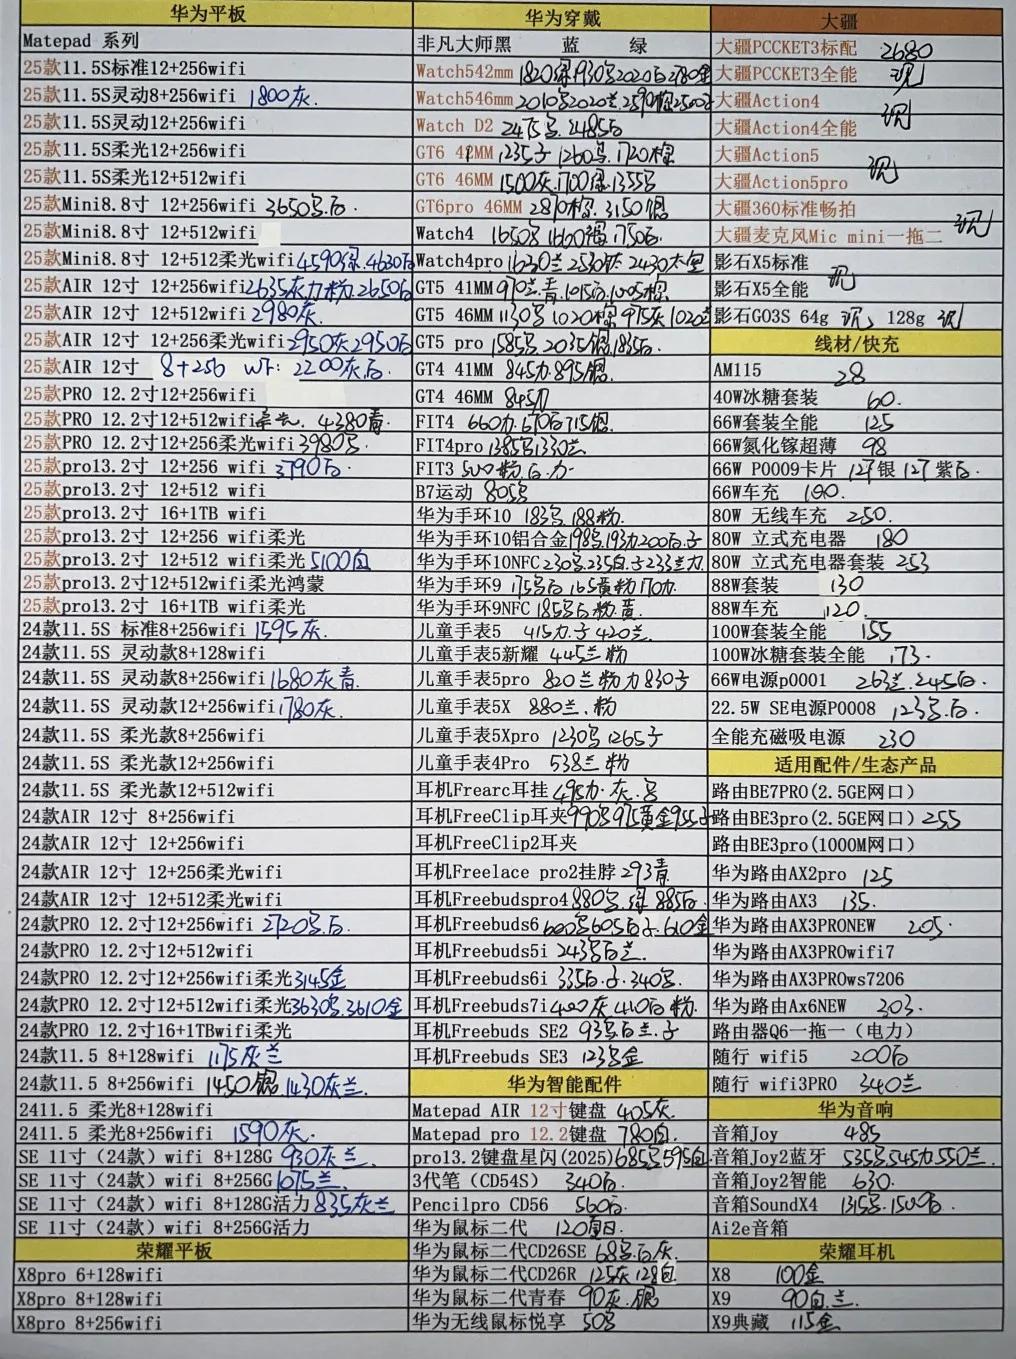 华为平板
Matepad 系列
25款11.5S标准12+256wifi
25款11.5S灵动8+256wifi 1800灰.
25款11.5S灵动12+256wifi
25款11.5S柔光12+256wifi
25款11.5S柔光12+512wifi
25款Mini8.8寸 12+256wifi 3650.
25款Mini8.8寸 12+512wifi
25款Mini8.8寸 12+512柔光wifi 4590 4630
25款AIR 12寸 12+256wifi 2635灰 粉 2650
25款AIR 12寸 12+512wifi 2980灰.
25款AIR 12寸 12+256柔光wifi 2950灰 2950
25款AIR 12寸 8+256 wf: 2200灰
25款PRO 12.2寸12+256wifi
25款PRO 12.2寸12+512wifi柔光. 4380青
25款PRO 12.2寸12+256柔光wifi 3980
25款pro13.2寸 12+256 wifi 3790
25款pro13.2寸 12+512 wifi
25款pro13.2寸 16+1TB wifi
25款pro13.2寸 12+256 wifi柔光
25款pro13.2寸 12+512 wifi柔光 5100白
25款pro13.2寸12+512wifi柔光鸿蒙
25款pro13.2寸 16+1TB wifi柔光
24款11.5S 标准8+256wifi 1595灰.
24款11.5S 灵动款8+128wifi
24款11.5S 灵动款8+256wifi 1680灰青
24款11.5S 灵动款12+256wifi 1780灰.
24款11.5S 柔光款8+256wifi
24款11.5S 柔光款12+256wifi
24款11.5S 柔光款12+512wifi
24款AIR 12寸 8+256wifi
24款AIR 12寸 12+256wifi
24款AIR 12寸 12+256柔光wifi
24款AIR 12寸 12+512柔光wifi
24款PRO 12.2寸12+256wifi 2720
24款PRO 12.2寸12+512wifi
24款PRO 12.2寸12+256wifi柔光 3145金
24款PRO 12.2寸12+512wifi柔光 3630. 3610金
24款PRO 12.2寸16+1TBwifi柔光
24款11.5 8+128wifi 1175灰兰
24款11.5 8+256wifi 1450银 1430灰兰.
2411.5 柔光8+128wifi
2411.5 柔光8+256wifi 1590灰.
SE 11寸（24款）wifi 8+128G 930灰兰.
SE 11寸（24款）wifi 8+256G 1075兰.
SE 11寸（24款）wifi 8+128G活力 835灰兰
SE 11寸（24款）wifi 8+256G活力
荣耀平板
X8pro 6+128wifi
X8pro 8+128wifi
X8pro 8+256wifi
华为穿戴
非凡大师黑 蓝 绿
Watch542mm 1820 1930 2020 2780金
Watch546mm 2010 2020兰 2590 2500
Watch D2 2475. 2485
GT6 41MM 1235 1260. 1720
GT6 46MM 1500灰 1700 1355
GT6pro 46MM 2870 3150银
Watch4 1650 1660 1750
Watch4pro 1630兰 2530 2430
GT5 41MM 970兰.青. 1015 1005
GT5 46MM 1130 1020 975灰 1020
GT5 pro 1585 2035 1835
GT4 41MM 845 895银
GT4 46MM 845
FIT4 660 670 715银
FIT4pro 1385 1330兰
FIT3 500粉.
B7运动 805
华为手环10 183. 188粉.
华为手环10铝合金 198 193 200
华为手环10NFC 230 235白 233兰
华为手环9 175 165黄粉 170
华为手环9NFC 185 粉.黄.
儿童手表5 415 420兰.
儿童手表5新耀 445兰粉
儿童手表5pro 820兰粉 830
儿童手表5X 880兰.粉
儿童手表5Xpro 1230 1265
儿童手表4Pro 538兰粉
耳机Frearc耳挂 495 灰.
耳机FreeClip耳夹 990 975黄金 955
耳机FreeClip2耳夹
耳机Freelace pro2挂脖 293青
耳机Freebudspro4 880.绿 885
耳机Freebuds6 600 605 610金
耳机Freebuds5i 243 兰.
耳机Freebuds6i 335 340
耳机Freebuds7i 400灰 410 粉
耳机Freebuds SE2 93 兰.
耳机Freebuds SE3 123 金
华为智能配件
Matepad AIR 12寸键盘 405灰.
Matepad pro 12.2键盘 780白.
pro13.2键盘星闪(2025) 685 595白
3代笔（CD54S） 340
Pencilpro CD56 560
华为鼠标二代 120
华为鼠标二代CD26SE 68 灰.
华为鼠标二代CD26R 125灰 128白
华为鼠标二代青春 90灰.银
华为无线鼠标悦享 50
大疆
大疆PCCKET3标配 2680
大疆PCCKET3全能 现
大疆Action4
大疆Action4全能 现
大疆Action5
大疆Action5pro 现
大疆360标准畅拍
大疆麦克风Mic mini一拖二 现
影石X5标准
影石X5全能 现
影石GO3S 64g 现, 128g 现
线材/快充
AM115 28
40W冰糖套装 60.
66W套装全能 125
66W氮化镓超薄 98
66W P0009卡片 127银 127紫
66W车充 100.
80W 无线车充 250.
80W 立式充电器 180
80W 立式充电器套装 253
88W套装 130
88W车充 120.
100W套装全能 155
100W冰糖套装全能 173.
66W电源p0001 263兰. 245
22.5W SE电源P0008 123
全能充磁吸电源 230
适用配件/生态产品
路由BE7PRO(2.5GE网口)
路由BE3pro(2.5GE网口) 255
路由BE3pro(1000M网口)
华为路由AX2pro 125
华为路由AX3 135.
华为路由AX3PRONEW 205.
华为路由AX3PROwifi7
华为路由AX3PROws7206
华为路由Ax6NEW 303.
路由器Q6一拖一（电力）
随行 wifi5 200
随行 wifi3PRO 340兰
华为音响
音箱Joy 485
音箱Joy2蓝牙 535 545 550兰.
音箱Joy2智能 630.
音箱SoundX4 1315 1500
Ai2e音箱
荣耀耳机
X8 100金
X9 90白.兰.
X9典藏 115金